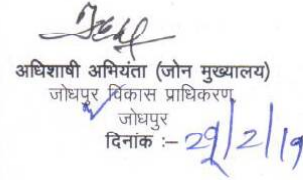 अधिशाषी अभियंता (जोन मुख्यालय)
जोधपुर विकास प्राधिकरण
जोधपुर
दिनांक :– 29/2/19